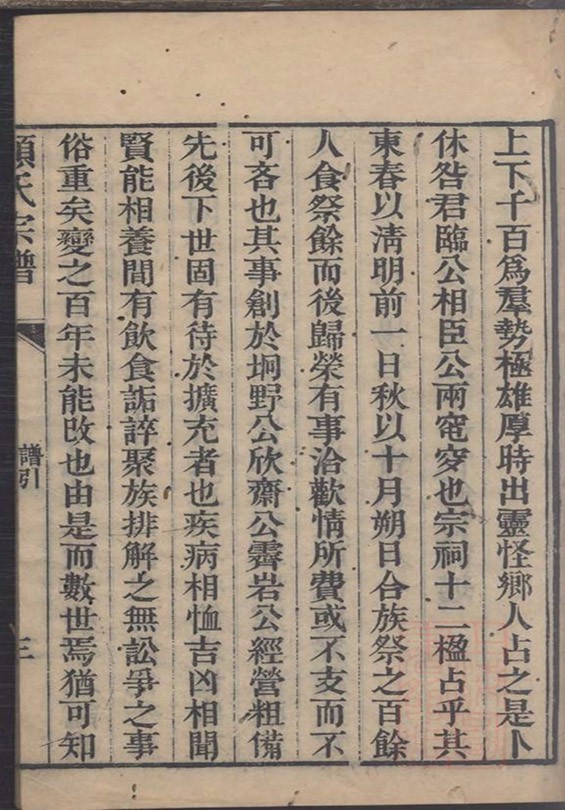 上下千百爲羣勢極雄厚時出靈怪鄉人占之是卜
休咎君臨公相臣公兩窀穸也宗祠十二楹占乎其
東春以清明前一日秋以十月朔日合族祭之百餘
人食祭餘而後歸榮有事洽歡情所費或不支而不
可吝也其事創於坰野公欣齋公霽岩公經營粗備
先後下世固有待於擴充者也疾病相恤吉凶相聞
賢能相養間有飲食詬誶聚族排解之無訟爭之事
俗重矣變之百年未能改也由是而數世焉猶可知
氏宗譜
譜引
三